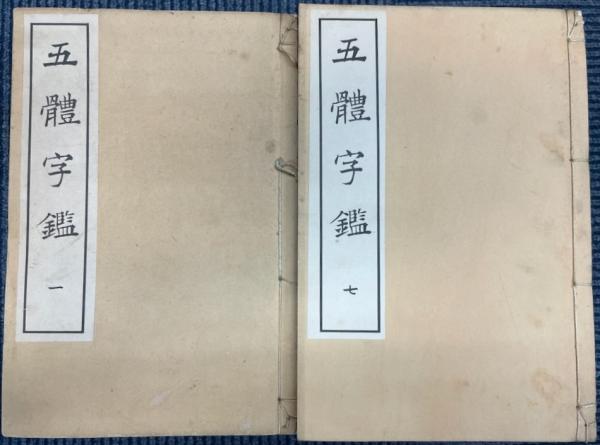 五體字鑑
一
五體字鑑
七